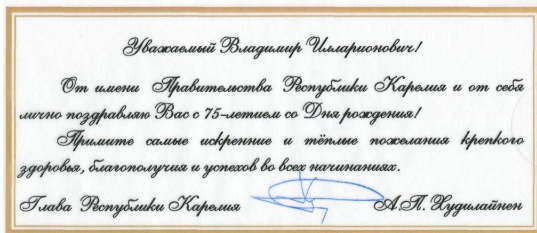 Уважаемый Владимир Илларионович!
От имени Правительства Республики Карелия и от себя
лично поздравляю Вас с 75-летием со Дня рождения!
Примите самые искренние и тёплые пожелания крепкого
здоровья, благополучия и успехов во всех начинаниях.
Глава Республики Карелия А.П. Худилайнен